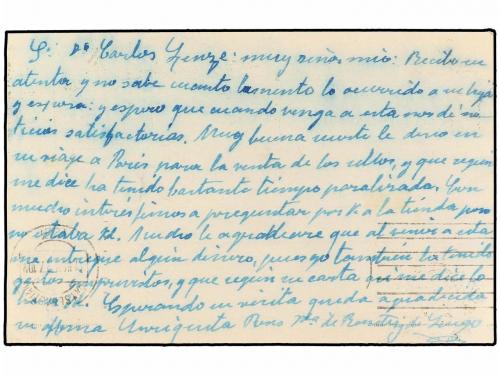 Sr Dn Carlos Linze: muy señor mio: Recibo su
atenta y no sabe cuanto lamento lo ocurrido a su hija
y esposa: y espero que cuando venga a esta nos dé no
ticias satisfactorias. Muy buena suerte le deseo en
su viaje a Paris para la venta de los sellos, y que según
me dice ha tenido bastante tiempo paralizada. Con
mucho interés fuimos a preguntar por V. a la tienda pero
no estaba Vd. Mucho le agradeceré que al venir a esta
me entregue algún dinero, pues yo también he tenido
gastos imprevistos, y que según su carta me dice lo
hará Vd. Esperando su visita queda agradecida
su afma Enriqueta Roses Vda de